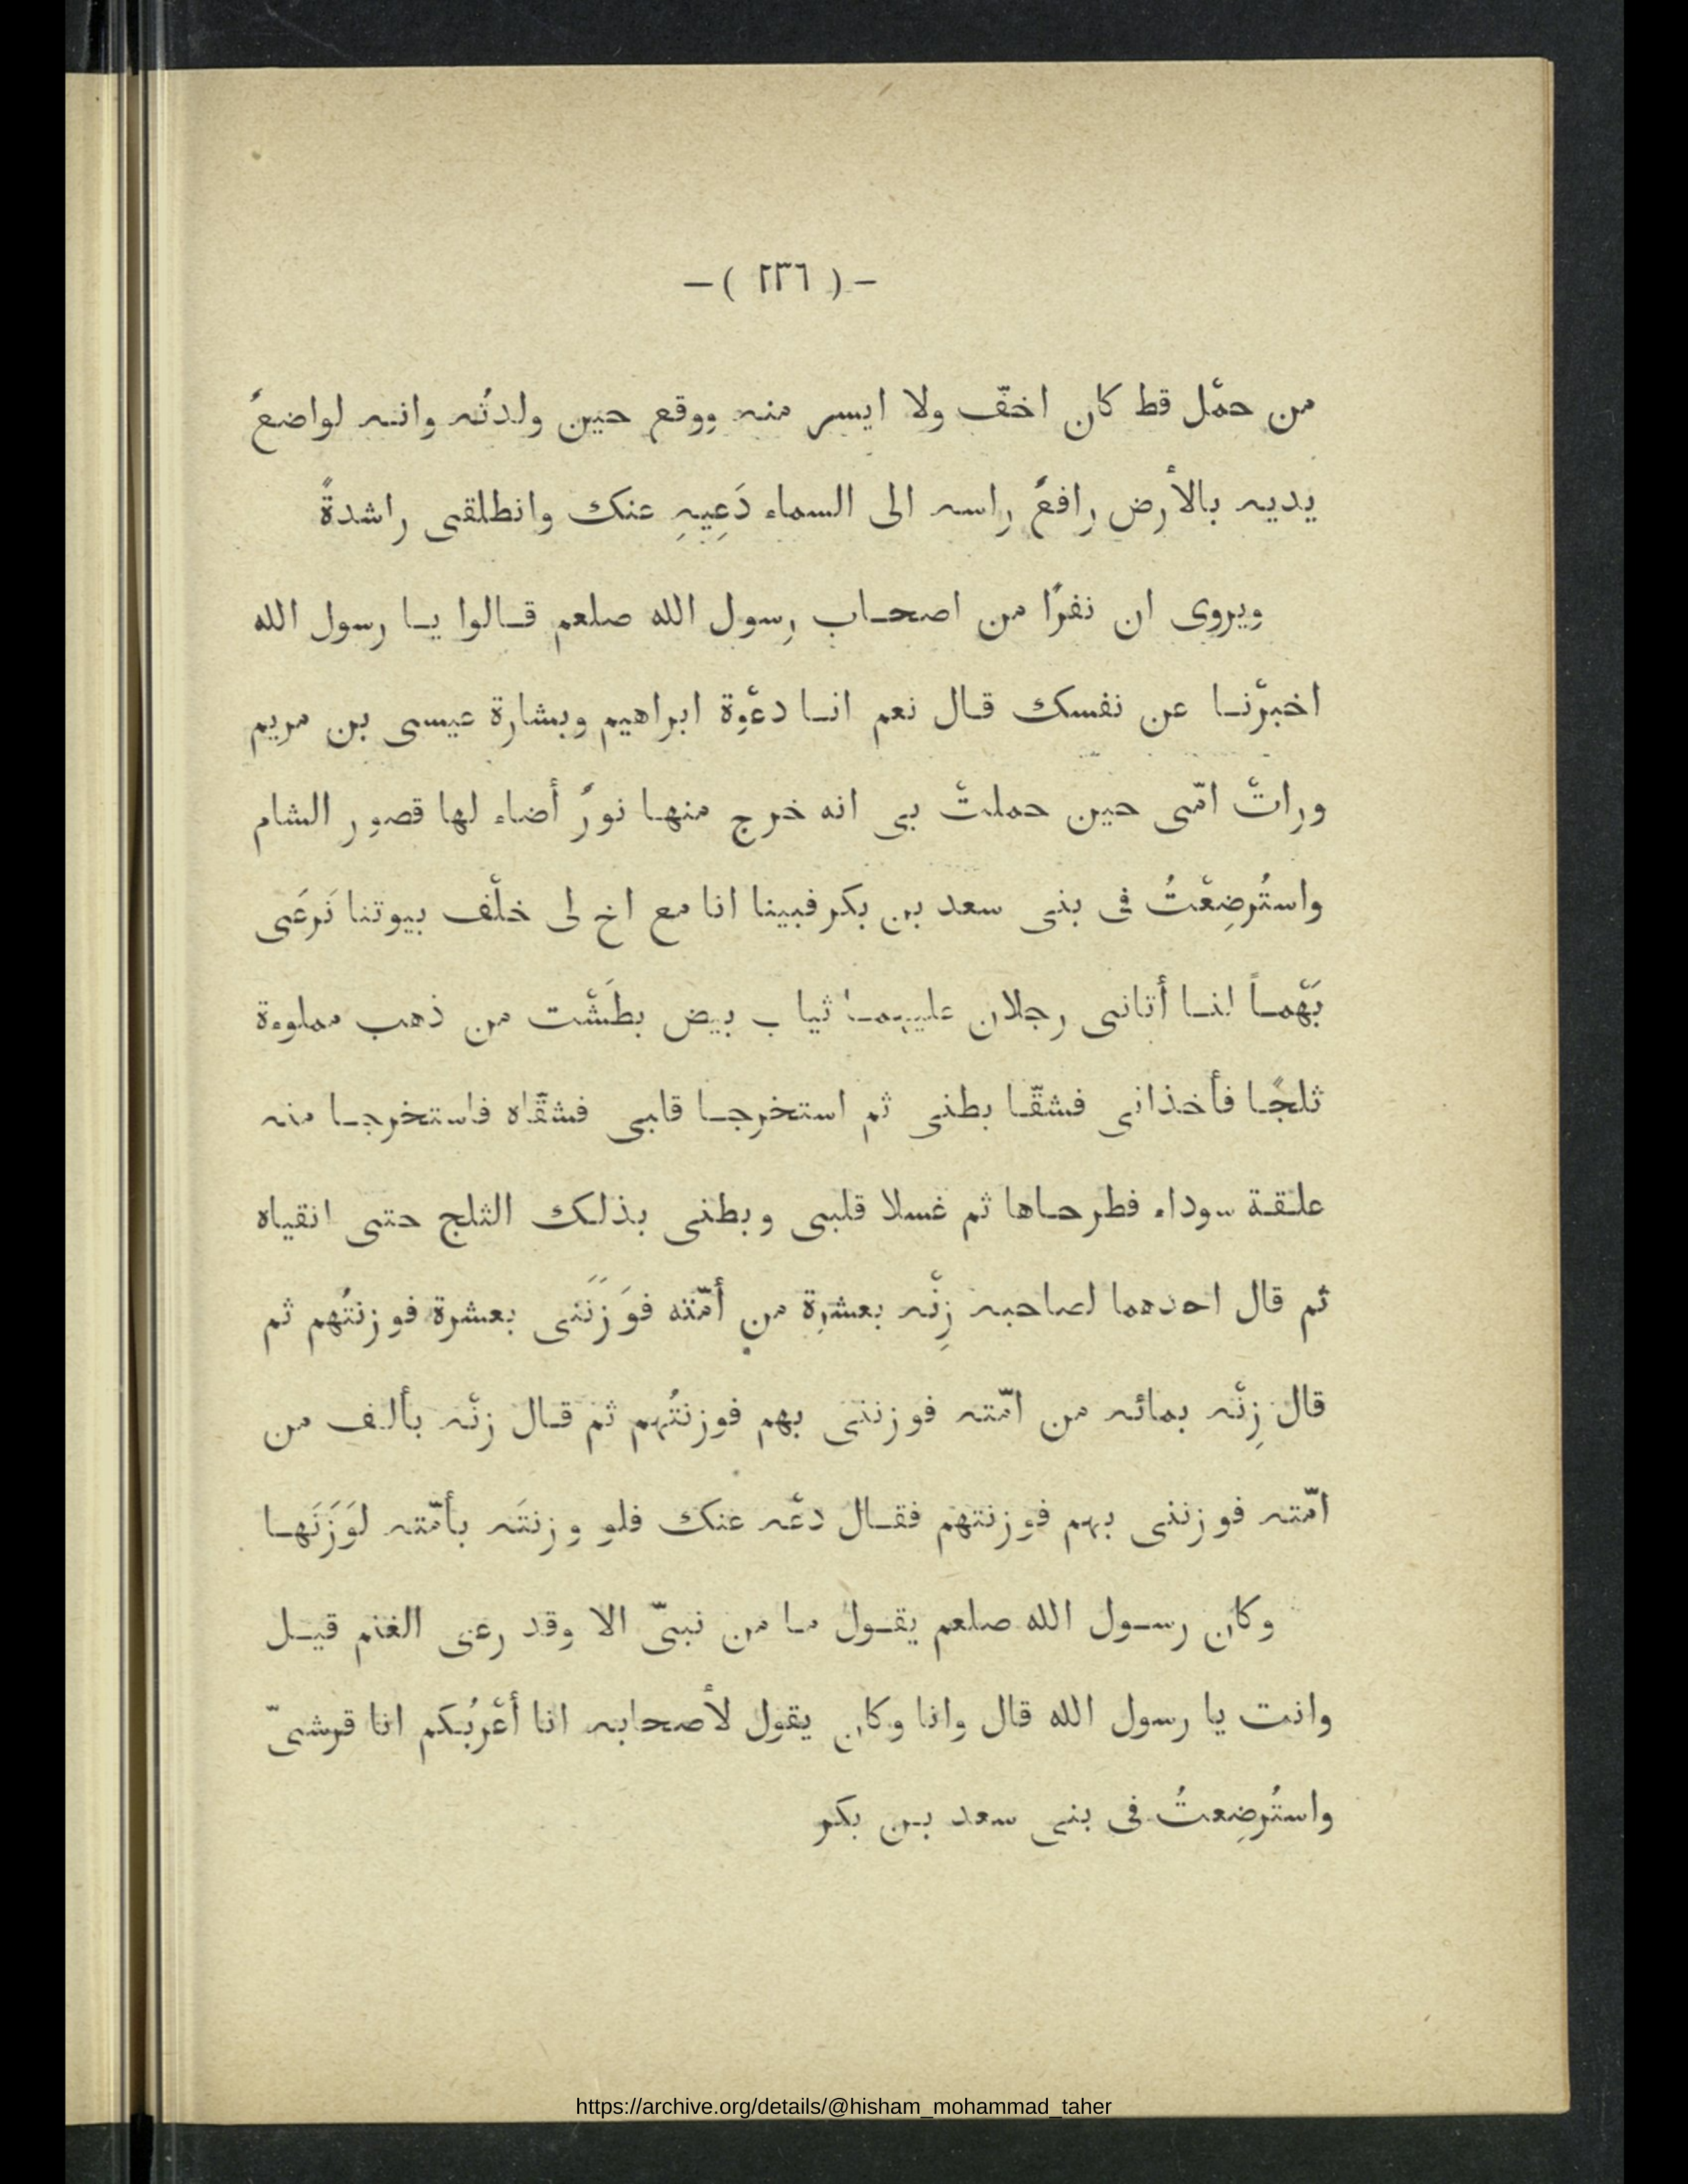 — ( ٢٣٦ ) —
من حمْل قط كان اخفّ ولا ايسر منه ووقع حين ولدتُه وانه لواضعٌ
يديه بالأرض رافعٌ راسه الى السماء دَعِيهِ عنك وانطلقى راشدةً
ويروى ان نفرًا من اصحاب رسول الله صلعم قالوا يا رسول الله
اخبرْنا عن نفسك قال نعم انا دعْوة ابراهيم وبشارة عيسى بن مريم
وراتْ امّى حين حملتْ بى انه خرج منها نورٌ أضاء لها قصور الشام
واستُرضِعْتُ فى بنى سعد بن بكر فبينا انا مع اخ لى خلْف بيوتنا نَرعَى
بَهْماً لنا أتانى رجلان عليهما ثياب بيض بطَشْت من ذهب مملوءة
ثلجًا فأخذانى فشقّا بطنى ثم استخرجا قلبى فشقّاه فاستخرجا منه
علقة سوداء فطرحاها ثم غسلا قلبى وبطنى بذلك الثلج حتى انقياه
ثم قال احدهما لصاحبه زِنْه بعشرة من أمّته فوَزَنَنى بعشرة فوزنتُهم ثم
قال زِنْه بمائه من امّته فوزننى بهم فوزنتُهم ثم قال زنْه بألف من
امّته فوزننى بهم فوزنتهم فقال دعْه عنك فلو وزنتَه بأمّته لوَزَنَها
وكان رسول الله صلعم يقول ما من نبىّ الا وقد رعى الغنم قيل
وانت يا رسول الله قال وانا وكان يقول لأصحابه انا أعْرَبُكم انا قرشىّ
واستُرضِعتُ فى بنى سعد بن بكر
https://archive.org/details/@hisham_mohammad_taher